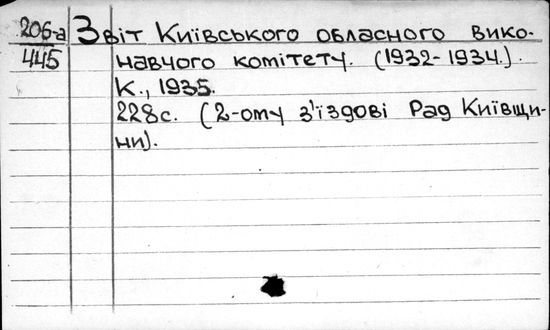 206-а Звіт Київського обласного вико-
445 навчого комітету. (1932-1934.).
К., 1935.
228с. (2-ому з'їздові Рад Київщи-
ни).